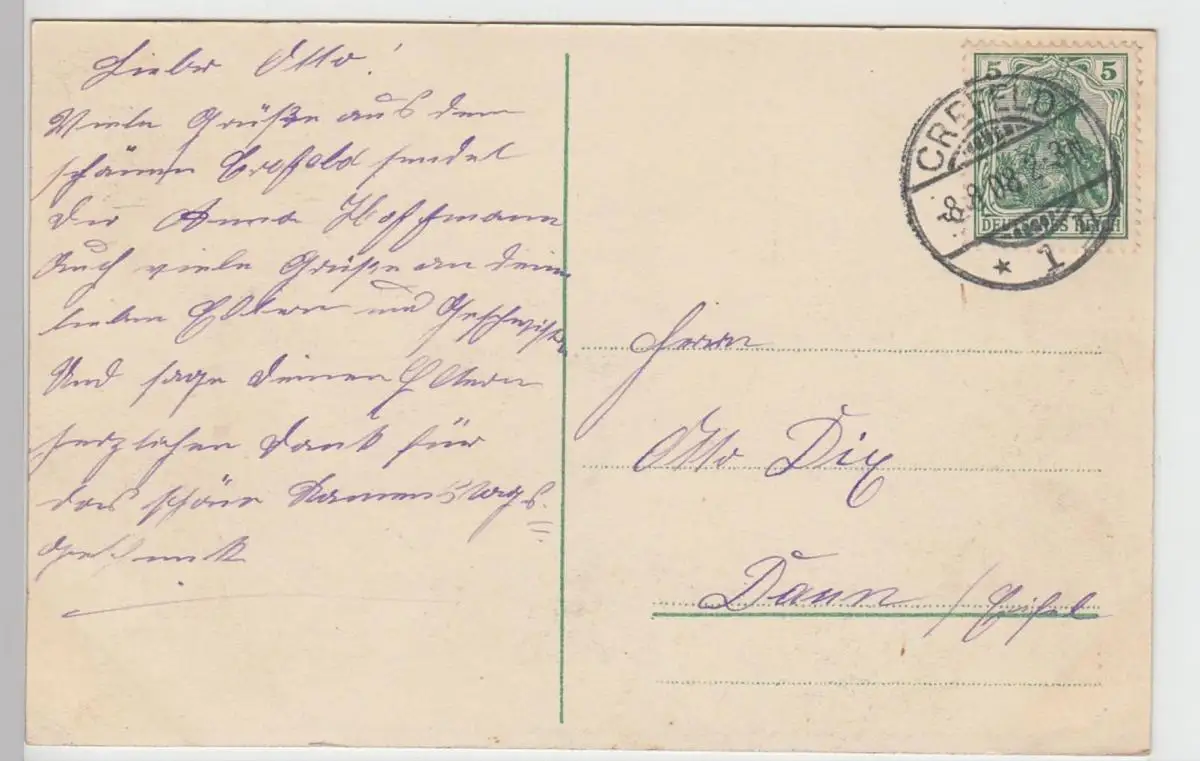 Lieber Otto!
Viele Grüße aus dem
schönen Crefeld sendet
dir Anna Hoffmann
Auch viele Grüße an deine
lieben Eltern und Geschwister
Und sage deinen Eltern
herzlichen Dank für
das schöne Namenstags=
geschenk
5 5
DEUTSCHES REICH
CREFELD
8.8.08. 2-3N
* 1
Herrn
Otto Dix
Daun / Eifel